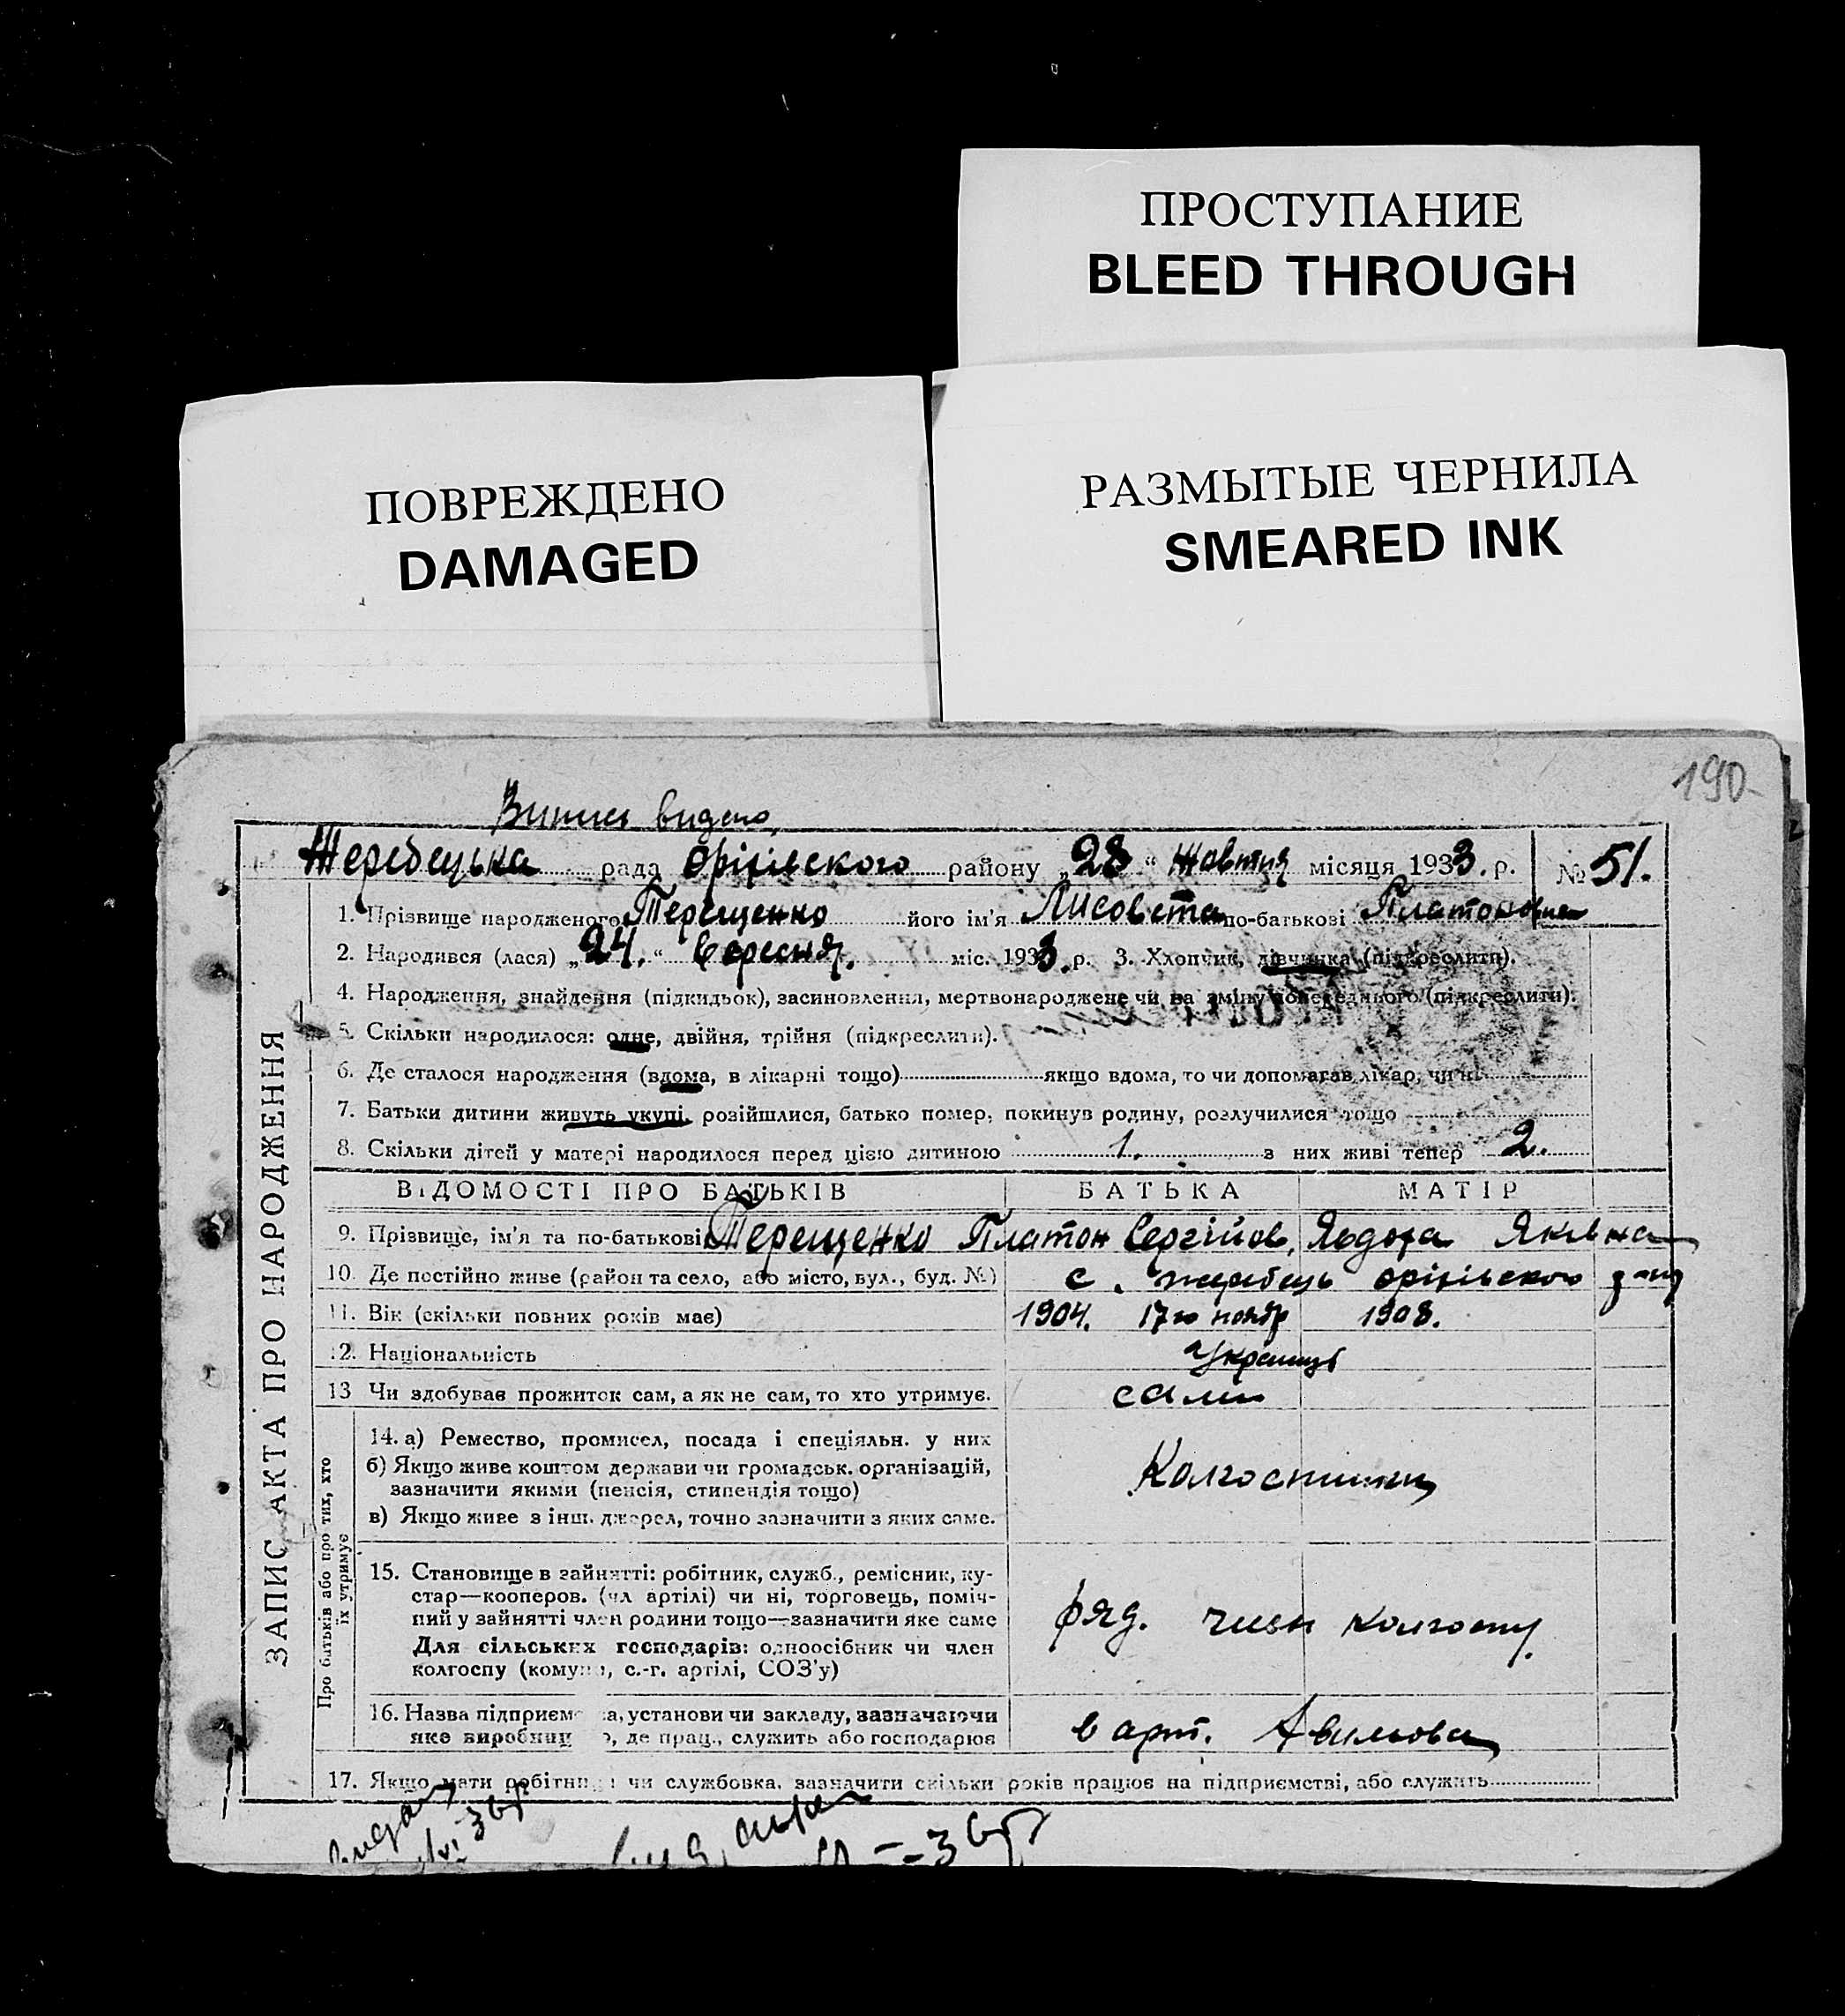 ПРОСТУПАНИЕ
BLEED THROUGH
ПОВРЕЖДЕНО
DAMAGED
РАЗМЫТЫЕ ЧЕРНИЛА
SMEARED INK
190
Випись видано
Жеребецька рада оріхівского району „28“ Жовтня місяця 1933. р. № 51.
ЗАПИС АКТА ПРО НАРОДЖЕННЯ
1. Прізвище народженого Терещенко його ім'я Лисовета по-батькові Платоновна
2. Народився (лася) „24.“ Вересня. міс. 1933. р. 3. Хлопчик, дівчинка (підкреслити).
4. Народження, знайдення (підкидьок), засиновлення, мертвонароджене чи на зміну попереднього (підкреслити).
5. Скільки народилося: одне, двійня, трійня (підкреслити).
6. Де сталося народження (вдома, в лікарні тощо) якщо вдома, то чи допомагав лікар, чи ні
7. Батьки дитини живуть укупі, розійшлися, батько помер, покинув родину, розлучилися тощо
8. Скільки дітей у матері народилося перед цією дитиною 1. з них живі тепер 2.
ВІДОМОСТІ ПРО БАТЬКІВ БАТЬКА МАТІР
9. Прізвище, ім'я та по-батькові Терещенко Платон Сергійов, Явдоха Яківна
10. Де постійно живе (район та село, або місто, вул., буд. №) с. жеребець оріхівського
11. Вік (скільки повних років має) 1904. 17го ноябр 1908.
12. Національність Українці
13 Чи здобував прожиток сам, а як не сам, то хто утримує. сами
Про батьків або про тих, хто
їх утримує
14. а) Ремество, промисел, посада і спеціяльн. у них
б) Якщо живе коштом держави чи громадськ. організацій,
зазначити якими (пенсія, стипендія тощо)
в) Якщо живе з інш. джерел, точно зазначити з яких саме.
Колгоспники
15. Становище в зайнятті: робітник, служб., ремісник, ку-
стар—кооперов. (чл артілі) чи ні, торговець, поміч-
ний у зайнятті член родини тощо—зазначити яке саме
Для сільських господарів: одноосібник чи член
колгоспу (комуни, с.-г. артілі, СОЗ'у)
ряд. член колгоспу.
16. Назва підприєм а, установи чи закладу, зазначаючи
яке виробниц о, де прац., служить або господарює
в арт.
17. Якщо мати робітни чи службовка, зазначити скільки років працює на підприємстві, або служить